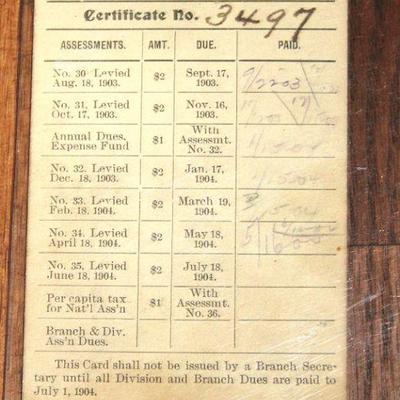 Certificate No. 3497
ASSESSMENTS. AMT. DUE. PAID.
No. 30 Levied $2 Sept. 17,
Aug. 18, 1903. 1903.
No. 31, Levied $2 Nov. 16,
Oct. 17, 1903. 1903.
Annual Dues. $1 With
Expense Fund Assessmt.
No. 32.
No. 32. Levied $2 Jan. 17,
Dec. 18, 1903. 1904.
No. 33. Levied $2 March 19,
Feb. 18, 1904. 1904.
No. 34. Levied $2 May 18,
April 18, 1904. 1904.
No. 35, Levied $2 July 18,
June 18, 1904. 1904.
Per capita tax $1 With
for Nat'l Ass'n Assessmt.
No. 36.
Branch & Div.
Ass'n Dues.
This Card shall not be issued by a Branch Secre-
tary until all Division and Branch Dues are paid to
July 1, 1904.